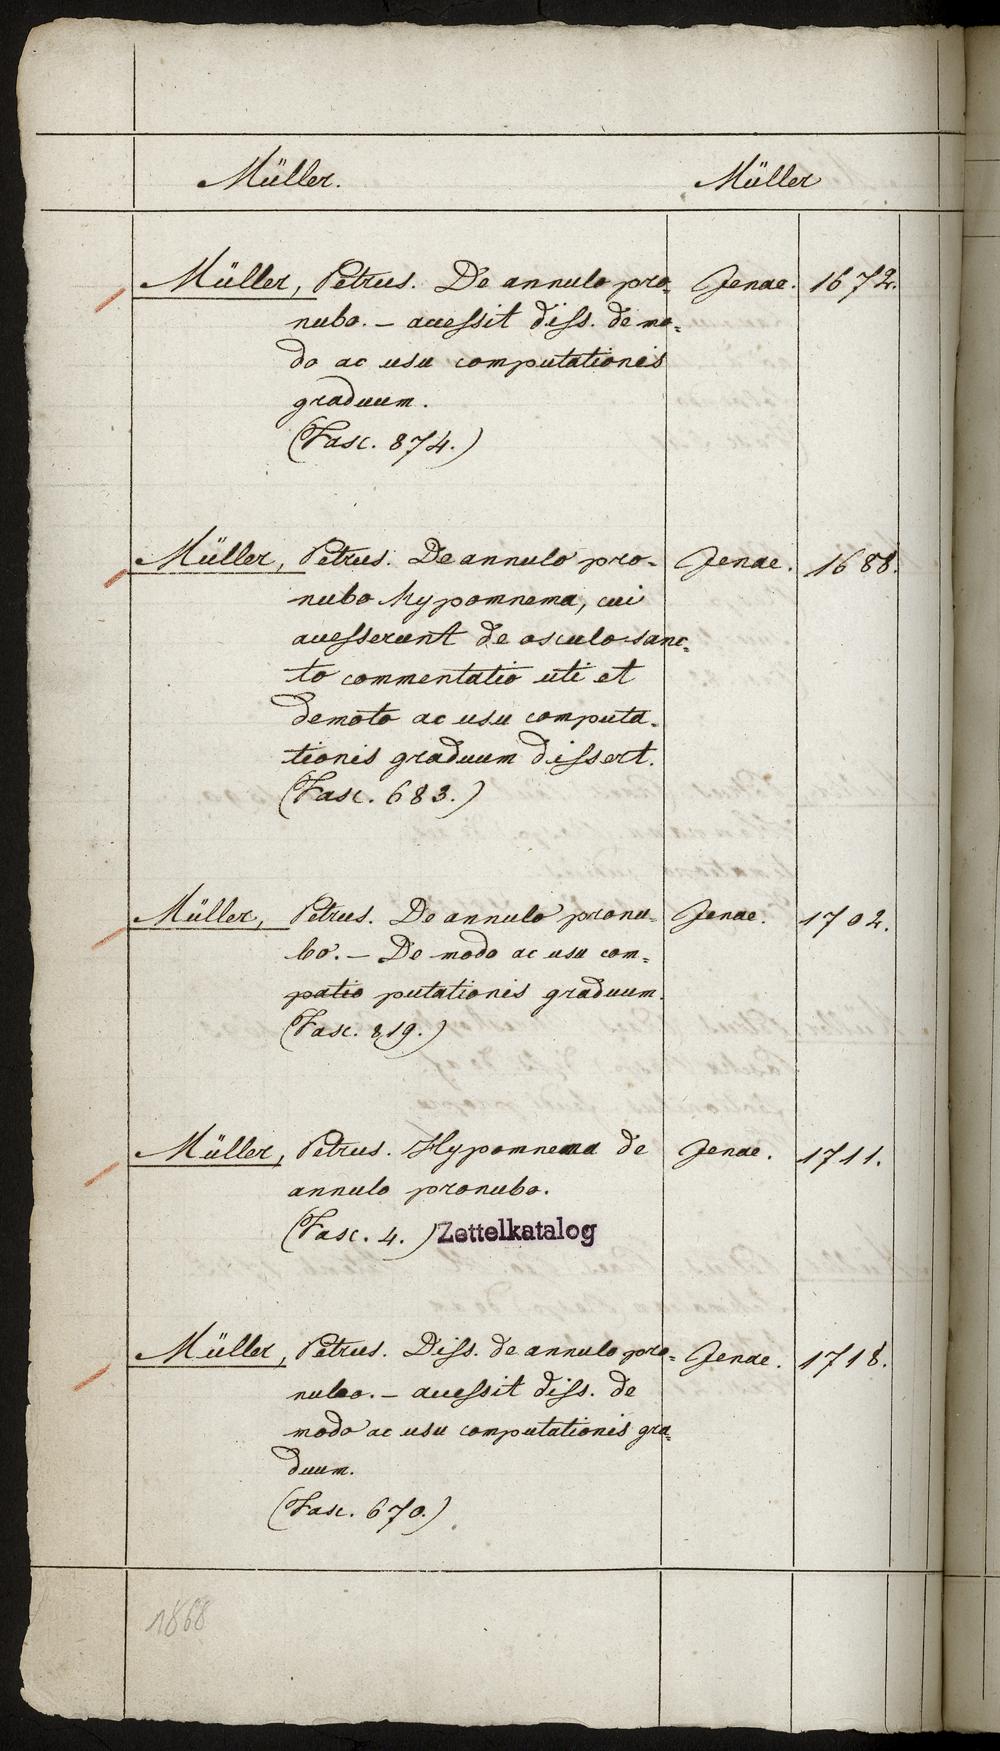 Müller. Müller
Müller, Petrus. De annulo pro= Jenae. 1672.
nubo. – accessit diss. de mo=
do ac usu computationis
graduum.
(Fasc. 874.)
Müller, Petrus. De annulo pro= Jenae. 1688.
nubo hypomnema, cui
accesserunt de osculo sanc=
to commentatio uti et
demoto ac usu computa=
tionis graduum dissert.
(Fasc. 683.)
Müller, Petrus. De annulo pronu= Jenae. 1702.
bo. – De modo ac usu com=
patio putationis graduum.
(Fasc. 819.)
Müller, Petrus. Hypomnema de Jenae. 1711.
annulo pronubo.
(Fasc. 4.) Zettelkatalog
Müller, Petrus. Diss. de annulo pro= Jenae. 1718.
nubo. – accessit diss. de
modo ac usu computationis gra=
duum.
(Fasc. 670.)
1868